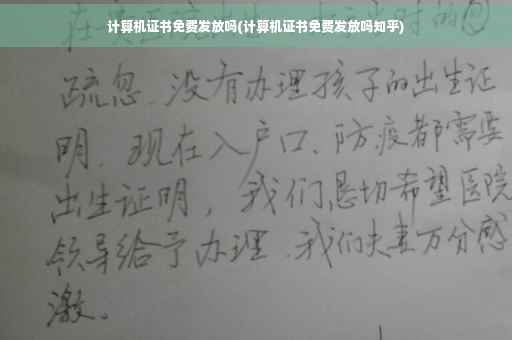 计算机证书免费发放吗(计算机证书免费发放吗知乎)
时的
疏忽、没有办理孩子的出生证
明、现在入户口、防疫都需要
出生证明，我们恳切希望医院
领导给予办理、我们夫妻万分感
激。